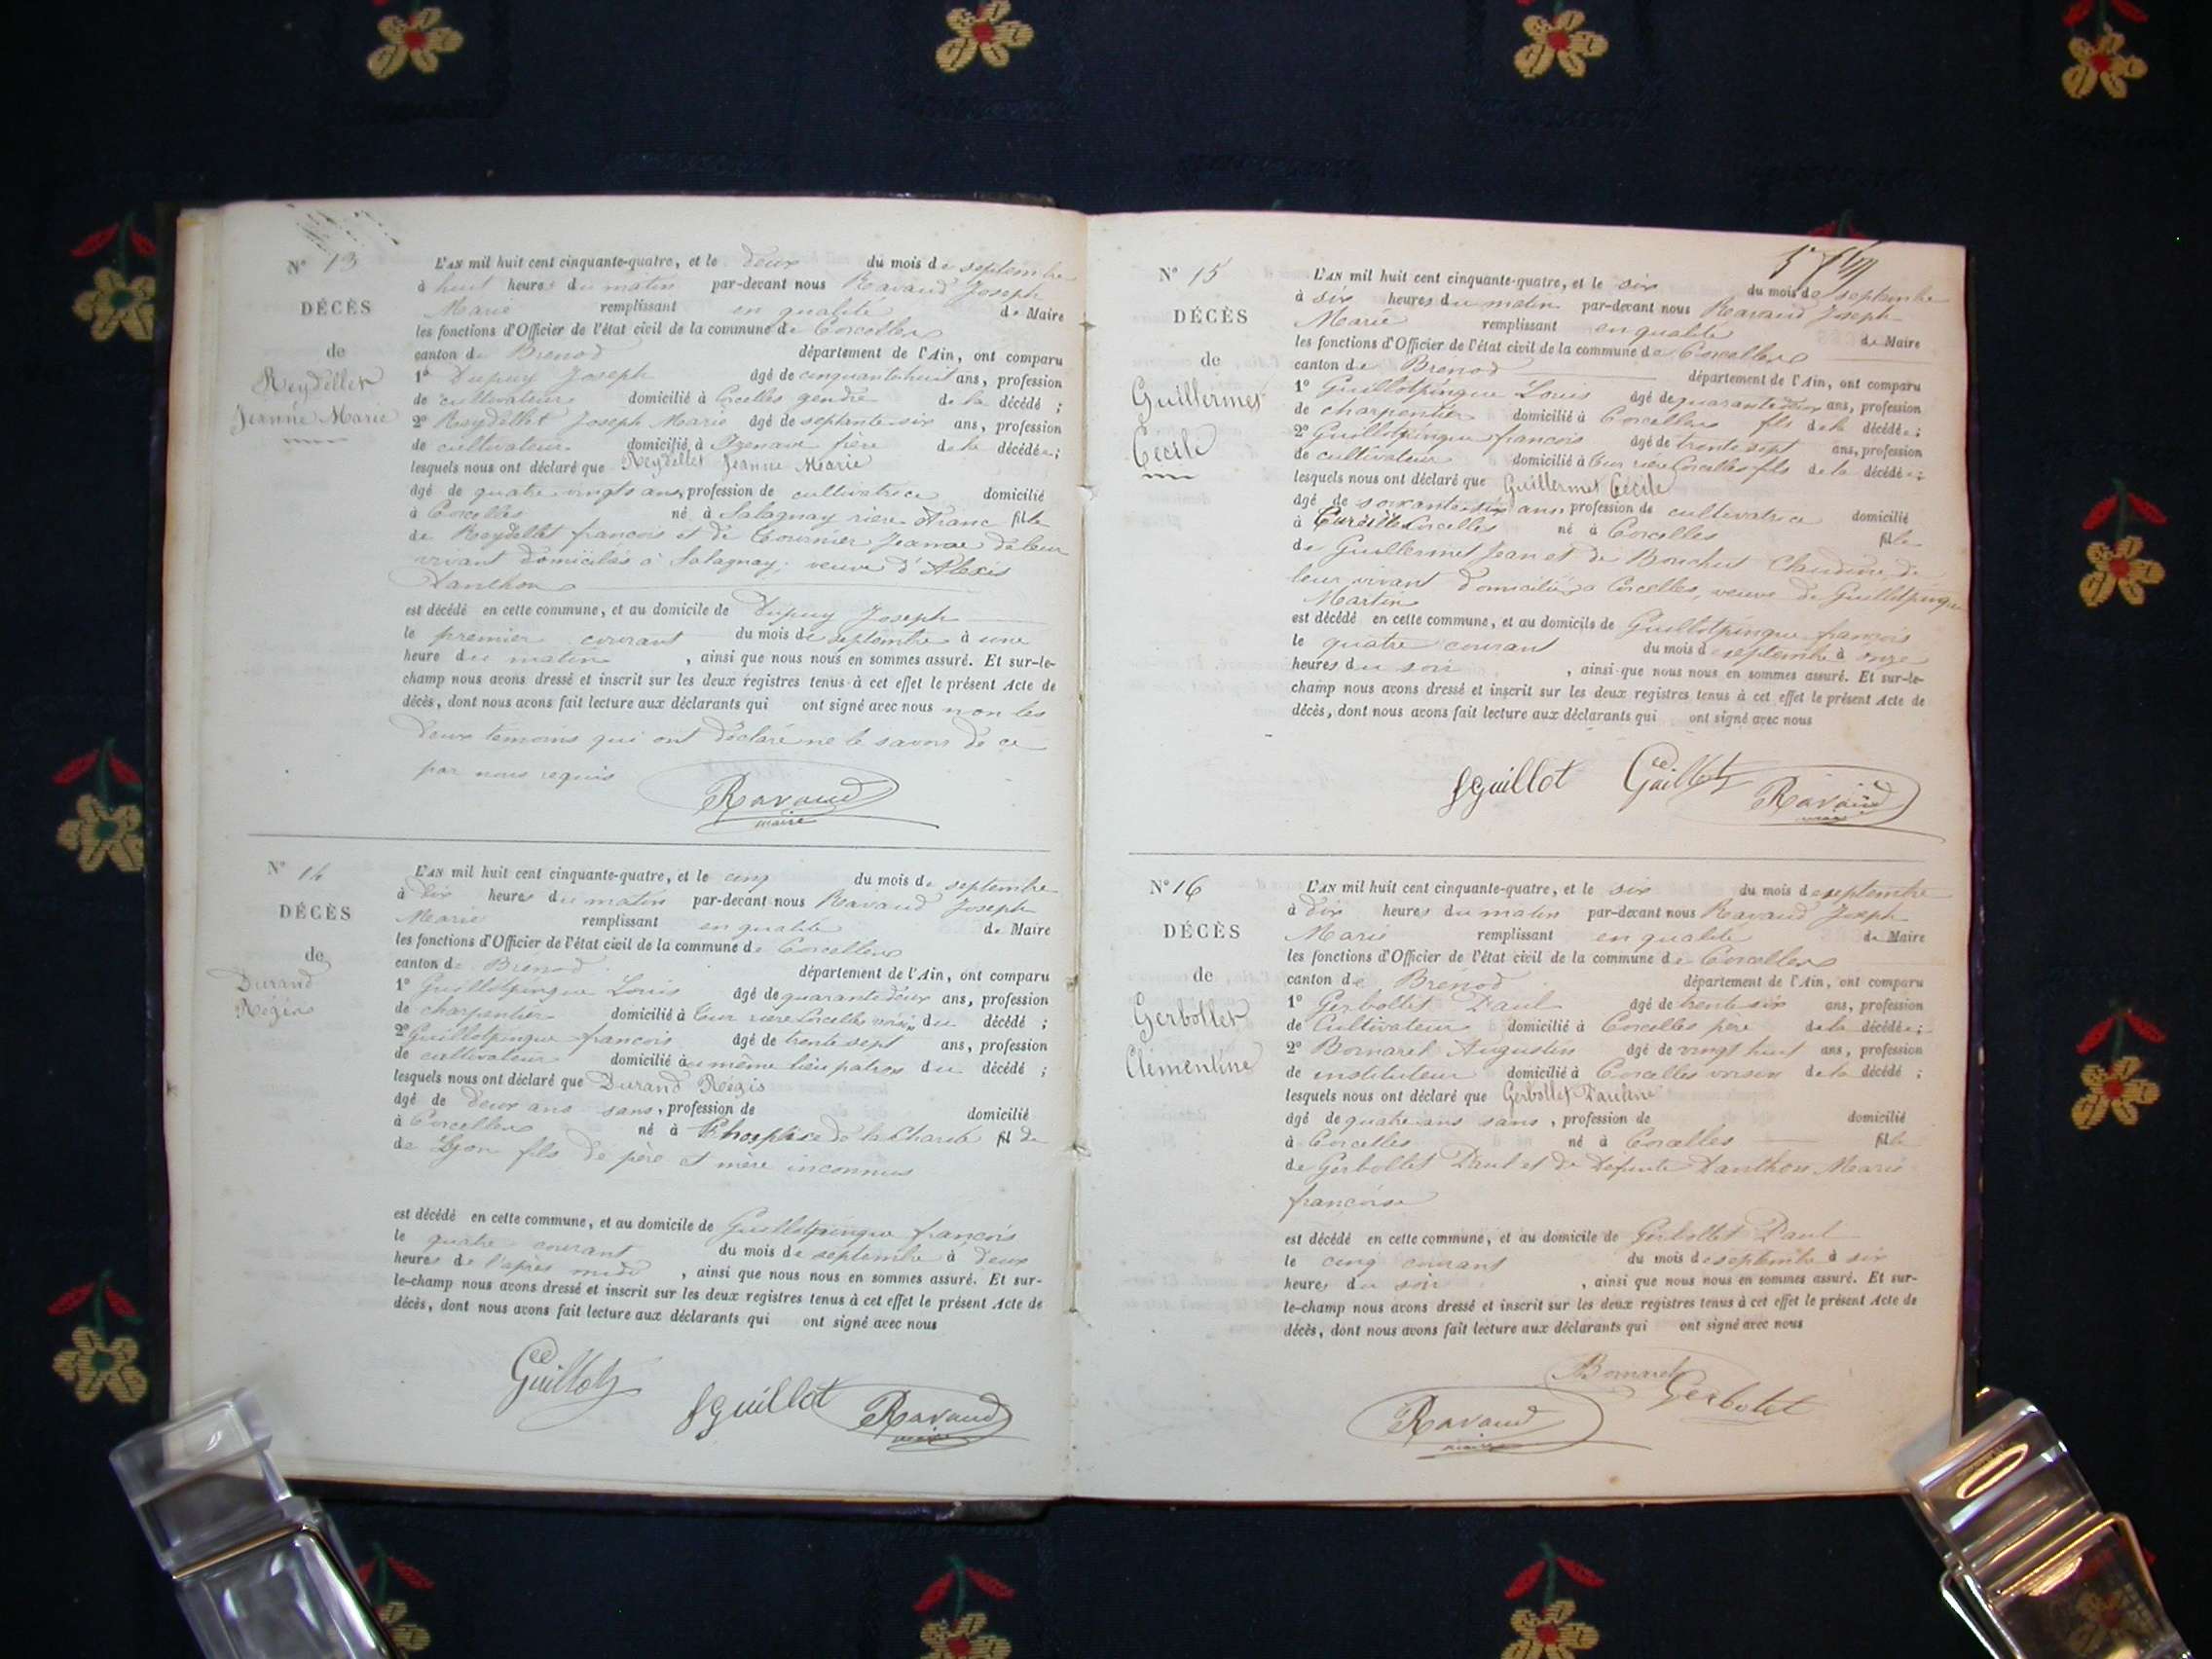 N° 13
DÉCÈS
de
Reydellet
Jeanne Marie
L'AN mil huit cent cinquante-quatre, et le deux du mois de septembre
à huit heures du matin par-devant nous Ravaud Joseph
Marie remplissant en qualité de Maire
les fonctions d'Officier de l'état civil de la commune de Corcelles
canton de Brenod département de l'Ain, ont comparu
1° Dupuy Joseph âgé de cinquante huit ans, profession
de cultivateur domicilié à Corcelles gendre de la décédé ;
2° Reydellet Joseph Marie âgé de septante six ans, profession
de cultivateur domicilié à Izenave frère de la décédée ;
lesquels nous ont déclaré que Reydellet Jeanne Marie
âgé de quatre vingts ans, profession de cultivatrice domicilié
à Corcelles né à Salagnay rière Aranc fille
de Reydellet francois et de Tournier Jeanne de leur
vivant domiciliés à Salagnay, veuve d'Alexis
Danthon
est décédé en cette commune, et au domicile de Dupuy Joseph
le premier courant du mois de septembre à une
heure du matin , ainsi que nous nous en sommes assuré. Et sur-le-
champ nous avons dressé et inscrit sur les deux registres tenus à cet effet le présent Acte de
décès, dont nous avons fait lecture aux déclarants qui ont signé avec nous non les
deux témoins qui ont déclaré ne le savoir de ce
par nous requis
Ravaud
maire
N° 14
DÉCÈS
de
Durand
Régis
L'AN mil huit cent cinquante-quatre, et le cinq du mois de septembre
à dix heures du matin par-devant nous Ravaud Joseph
Marie remplissant en qualité de Maire
les fonctions d'Officier de l'état civil de la commune de Corcelles
canton de Brénod département de l'Ain, ont comparu
1° Guillotpingue Louis âgé de quarante deux ans, profession
de charpentier domicilié à rière Corcelles voisin du décédé ;
2° Guillotpingue francois âgé de trente sept ans, profession
de cultivateur domicilié au même lieu patron du décédé ;
lesquels nous ont déclaré que Durand Régis
âgé de deux ans sans, profession de domicilié
à Corcelles né à l'hospice de la Charité fil de
de Lyon fils de père et mère inconnus
est décédé en cette commune, et au domicile de Guillotpingue francois
le quatre courant du mois de septembre à deux
heures de l'après midi , ainsi que nous nous en sommes assuré. Et sur-
le-champ nous avons dressé et inscrit sur les deux registres tenus à cet effet le présent Acte de
décès, dont nous avons fait lecture aux déclarants qui ont signé avec nous
Guillot
fguillot
Ravaud
maire
N° 15
DÉCÈS
de
Guillermet
Cécile
L'AN mil huit cent cinquante-quatre, et le six du mois de septembre
à six heures du matin par-devant nous Ravaud Joseph
Marie remplissant en qualité de Maire
les fonctions d'Officier de l'état civil de la commune de Corcelles
canton de Brenod département de l'Ain, ont comparu
1° Guillotpingue Louis âgé de quarante deux ans, profession
de charpentier domicilié à Corcelles fils de la décédée ;
2° Guillotpingue francois âgé de trente sept ans, profession
de cultivateur domicilié à rière Corcelles fils de la décédée ;
lesquels nous ont déclaré que Guillermet Cécile
âgé de soixante six ans, profession de cultivatrice domicilié
à Corcelles né à Corcelles fille
de Guillermet Jean et de Bouchut Claudine, de
leur vivant domiciliés à Corcelles, veuve de Guillotpingue
Martin
est décédé en cette commune, et au domicile de Guillotpingue francois
le quatre courant du mois de septembre à onze
heures du soir , ainsi que nous nous en sommes assuré. Et sur-le-
champ nous avons dressé et inscrit sur les deux registres tenus à cet effet le présent Acte de
décès, dont nous avons fait lecture aux déclarants qui ont signé avec nous
fguillot
Guillot
Ravaud
maire
N° 16
DÉCÈS
de
Gerbollet
Clémentine
L'AN mil huit cent cinquante-quatre, et le six du mois de septembre
à dix heures du matin par-devant nous Ravaud Joseph
Marie remplissant en qualité de Maire
les fonctions d'Officier de l'état civil de la commune de Corcelles
canton de Brénod département de l'Ain, ont comparu
1° Gerbollet Paul âgé de trente six ans, profession
de Cultivateur domicilié à Corcelles père de la décédée ;
2° Bornaret Augustin âgé de vingt huit ans, profession
de instituteur domicilié à Corcelles voisin de la décédé ;
lesquels nous ont déclaré que Gerbollet
âgé de quatre ans sans, profession de domicilié
à Corcelles né à Corcelles fille
de Gerbollet Paul et de défunte Danthon Marie
françoise
est décédé en cette commune, et au domicile de Gerbollet Paul
le cinq courant du mois de septembre à six
heures du soir , ainsi que nous nous en sommes assuré. Et sur-
le-champ nous avons dressé et inscrit sur les deux registres tenus à cet effet le présent Acte de
décès, dont nous avons fait lecture aux déclarants qui ont signé avec nous
Bornaret
Gerbolet
Ravaud
maire